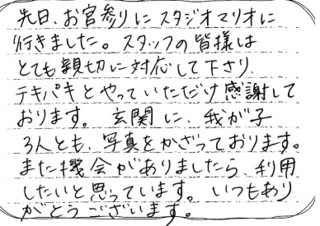 先日、お宮参りにスタジオマリオに
行きました。スタッフの皆様は
とても親切に対応して下さり
テキパキとやっていただけ感謝して
おります。玄関に、我が子
3人とも、写真をかざっております。
また機会がありましたら、利用
したいと思っています。いつもあり
がとうございます。